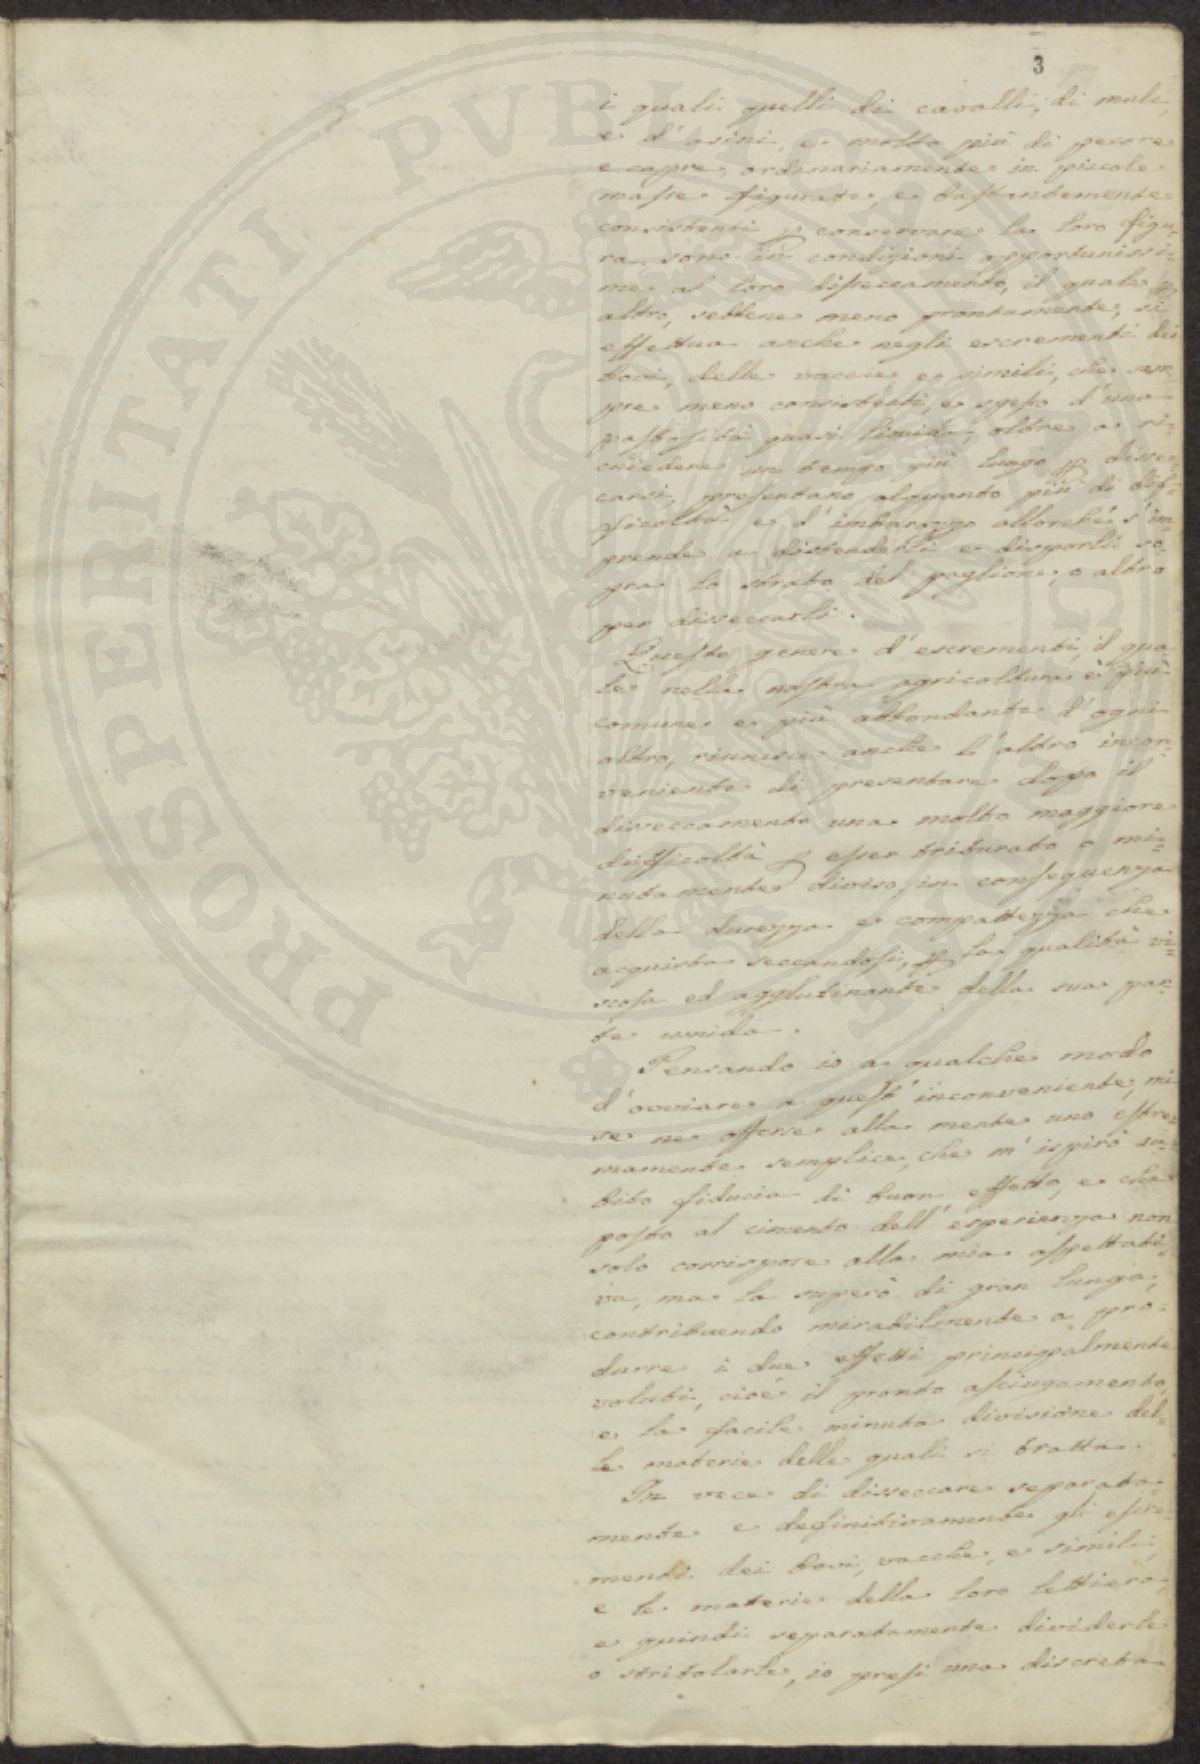 3
i quali quelli di cavalli, di muli,
e d'asini, e molto più di pecore
e capre, ordinariamente in piccole
masse figurate, e bastantemente
consistenti p conservare la loro figu=
ra, sono in condizioni opportunissi=
me al loro disseccamento, il quale p
altro, sebbene meno prontamente, si
effettua anche negli escrementi dei
bovi, delle vacche e simili, che sem
pre meno consistenti, e spesso d'una
pastosità quasi liquida, oltre a ri=
chiedere un tempo più lungo p dissec=
carsi, presentano alquanto più di dif=
ficoltà e d'imbarazzo allorché s'im=
prende a distenderli e disporli so=
pra lo strato del paglione, o altro
per disseccarli.
Questo genere d'escrementi, il qua
le nella nostra agricoltura è più
comune e più abbondante d'ogni
altro, riunisce anche l'altro incon=
veniente di presentare dopo il
disseccamento una molto maggiore
difficoltà p esser triturato o mi=
nutamente diviso, in conseguenza
della durezza e compattezza che
acquista seccandosi, p la qualità vi=
scosa ed agglutinante della sua par=
te umida.
Pensando io a qualche modo
d'ovviare a quest'inconveniente, mi
se ne offerse alla mente uno estre=
mamente semplice, che m'ispirò su=
bito fiducia di buon effetto, e che
posto al cimento dell'esperienza non
solo corrispose alla mia aspettati=
va, ma la superò di gran lunga,
contribuendo mirabilmente a pro=
durre i due effetti principalmente
voluti, cioè il pronto asciugamento,
e la facile minuta divisione del=
le materie delle quali si tratta.
In vece di disseccare separata
mente e definitivamente gli escre=
menti dei bovi, vacche, e simili,
e le materie della loro lettiera,
e quindi separatamente dividerle
o stritolarle, io presi una discreta
PROSPERITATI PVBLICAE AVGENDAE